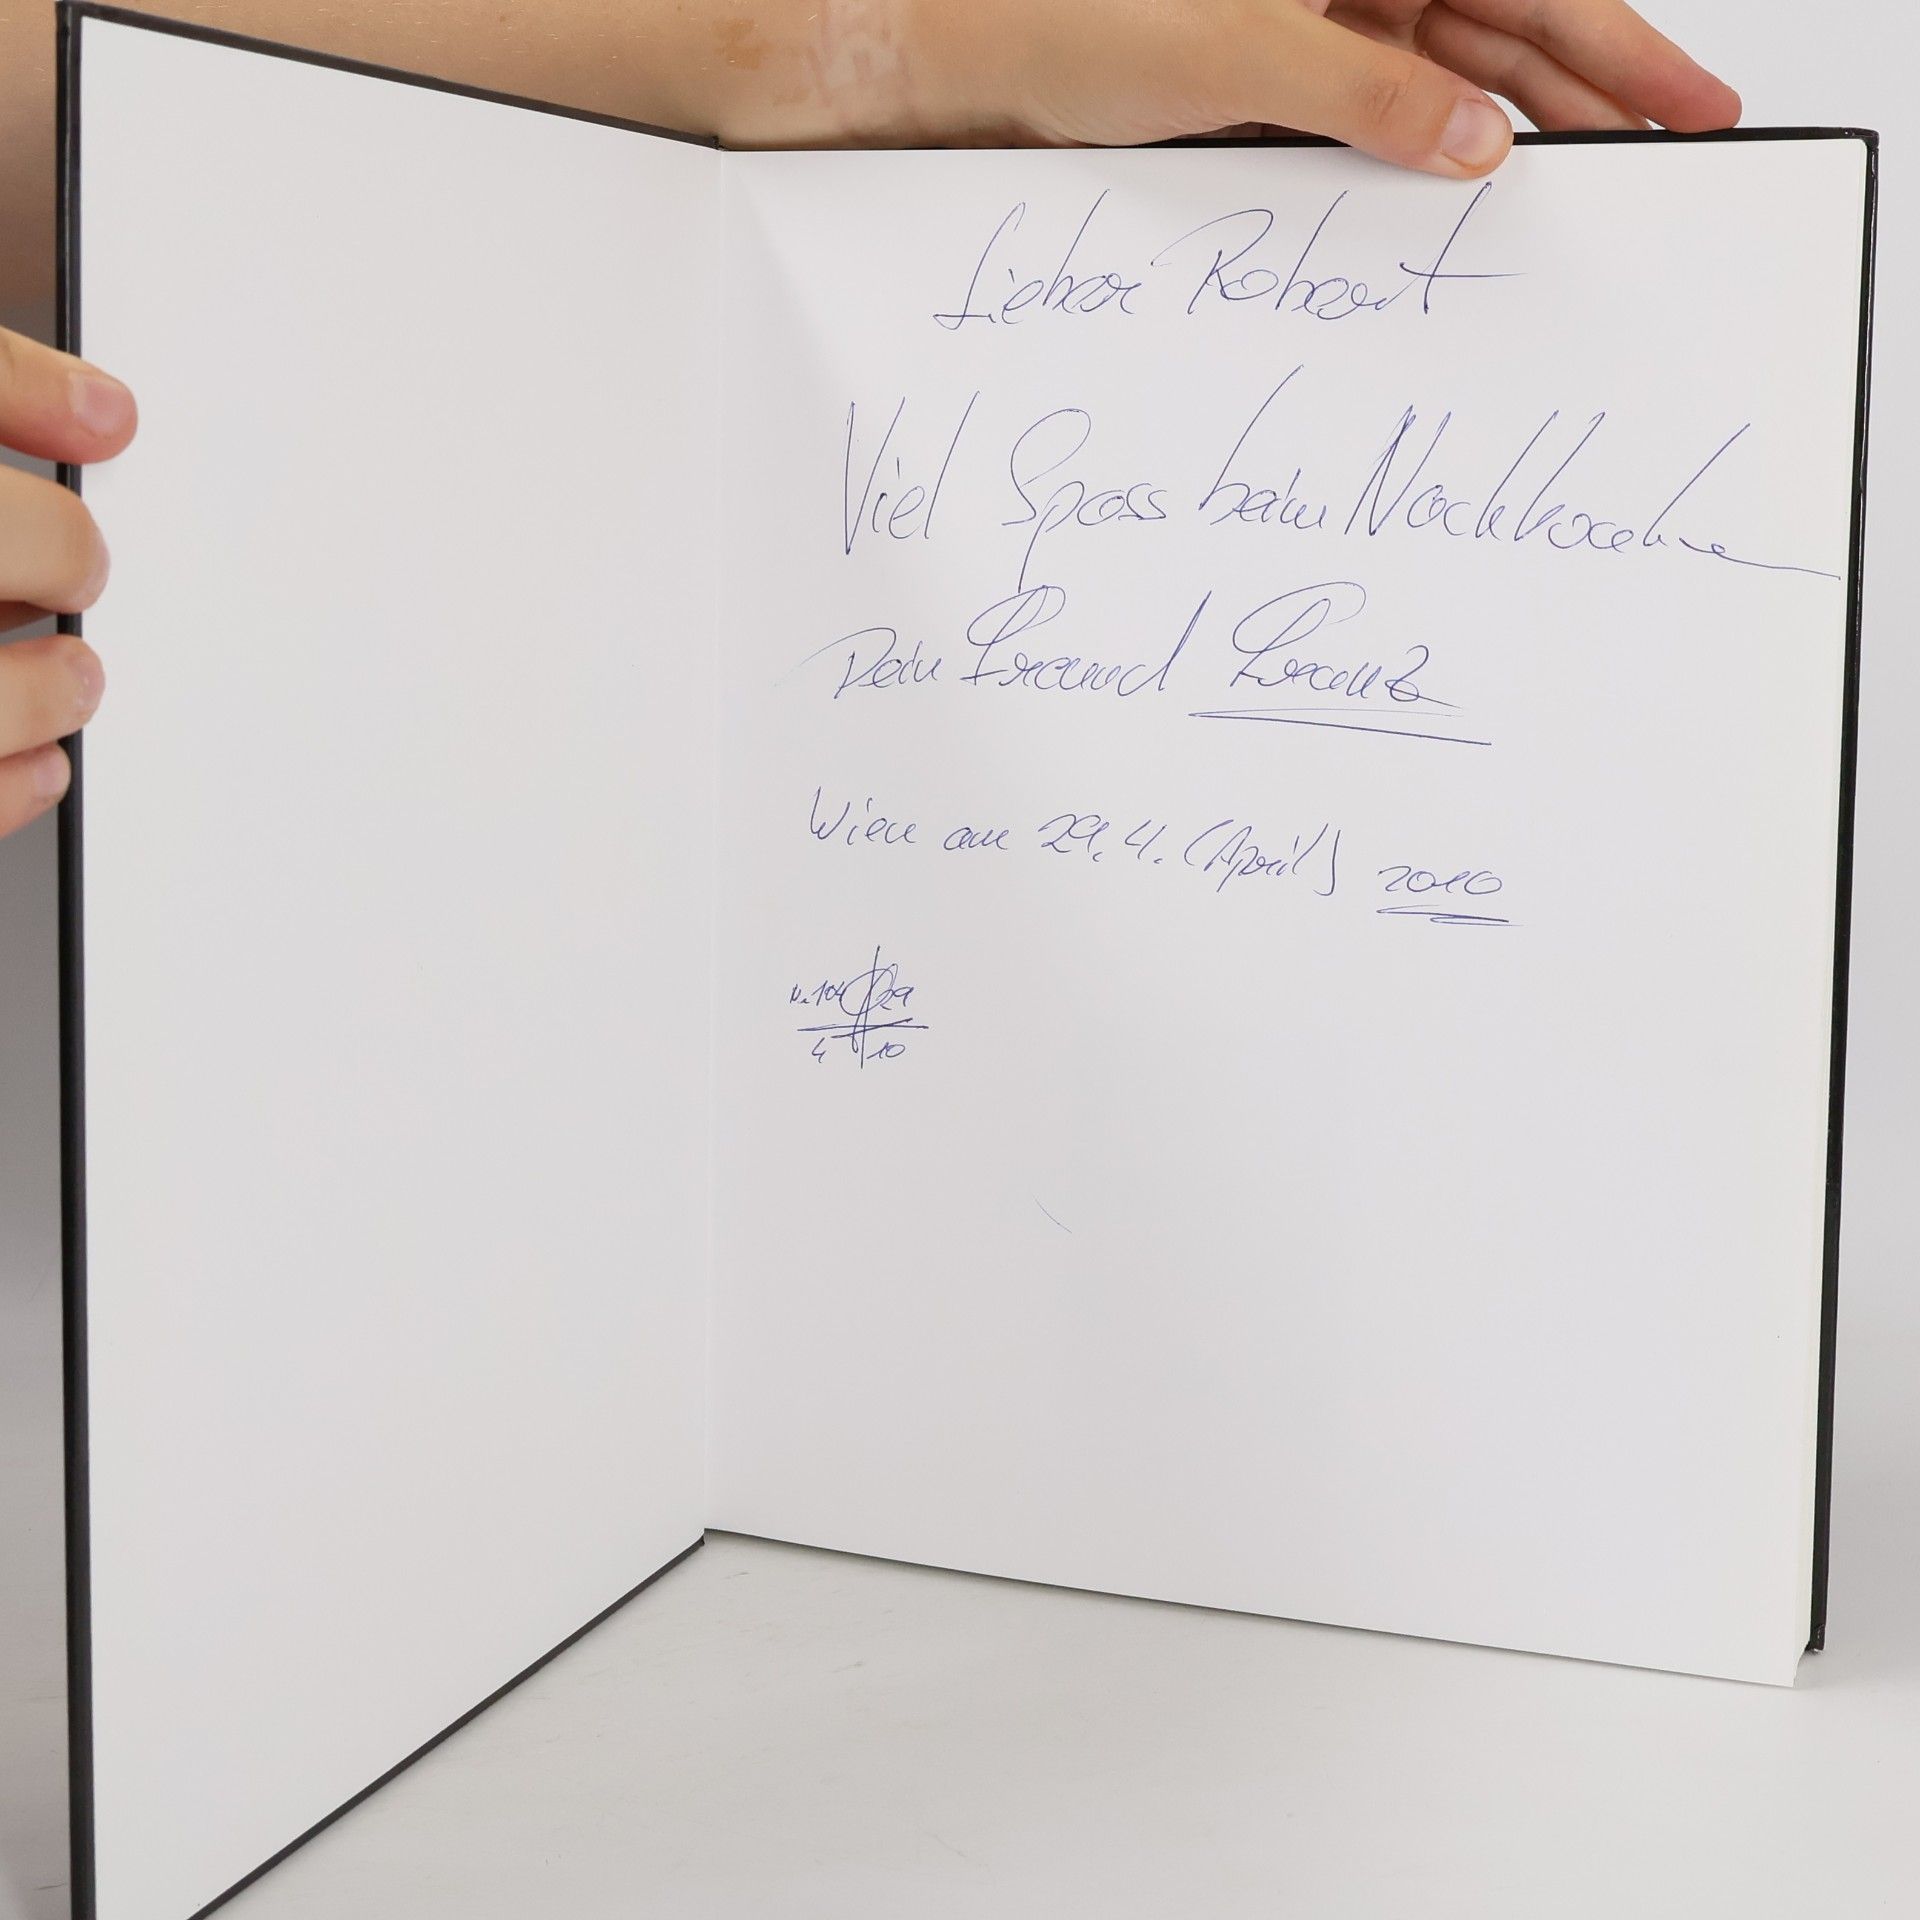 Lieber Robert
Viel Spass beim Nachkochen
Dein Freund Franz
Wien am 29.4. (April) 2010
No 104 29
4 10